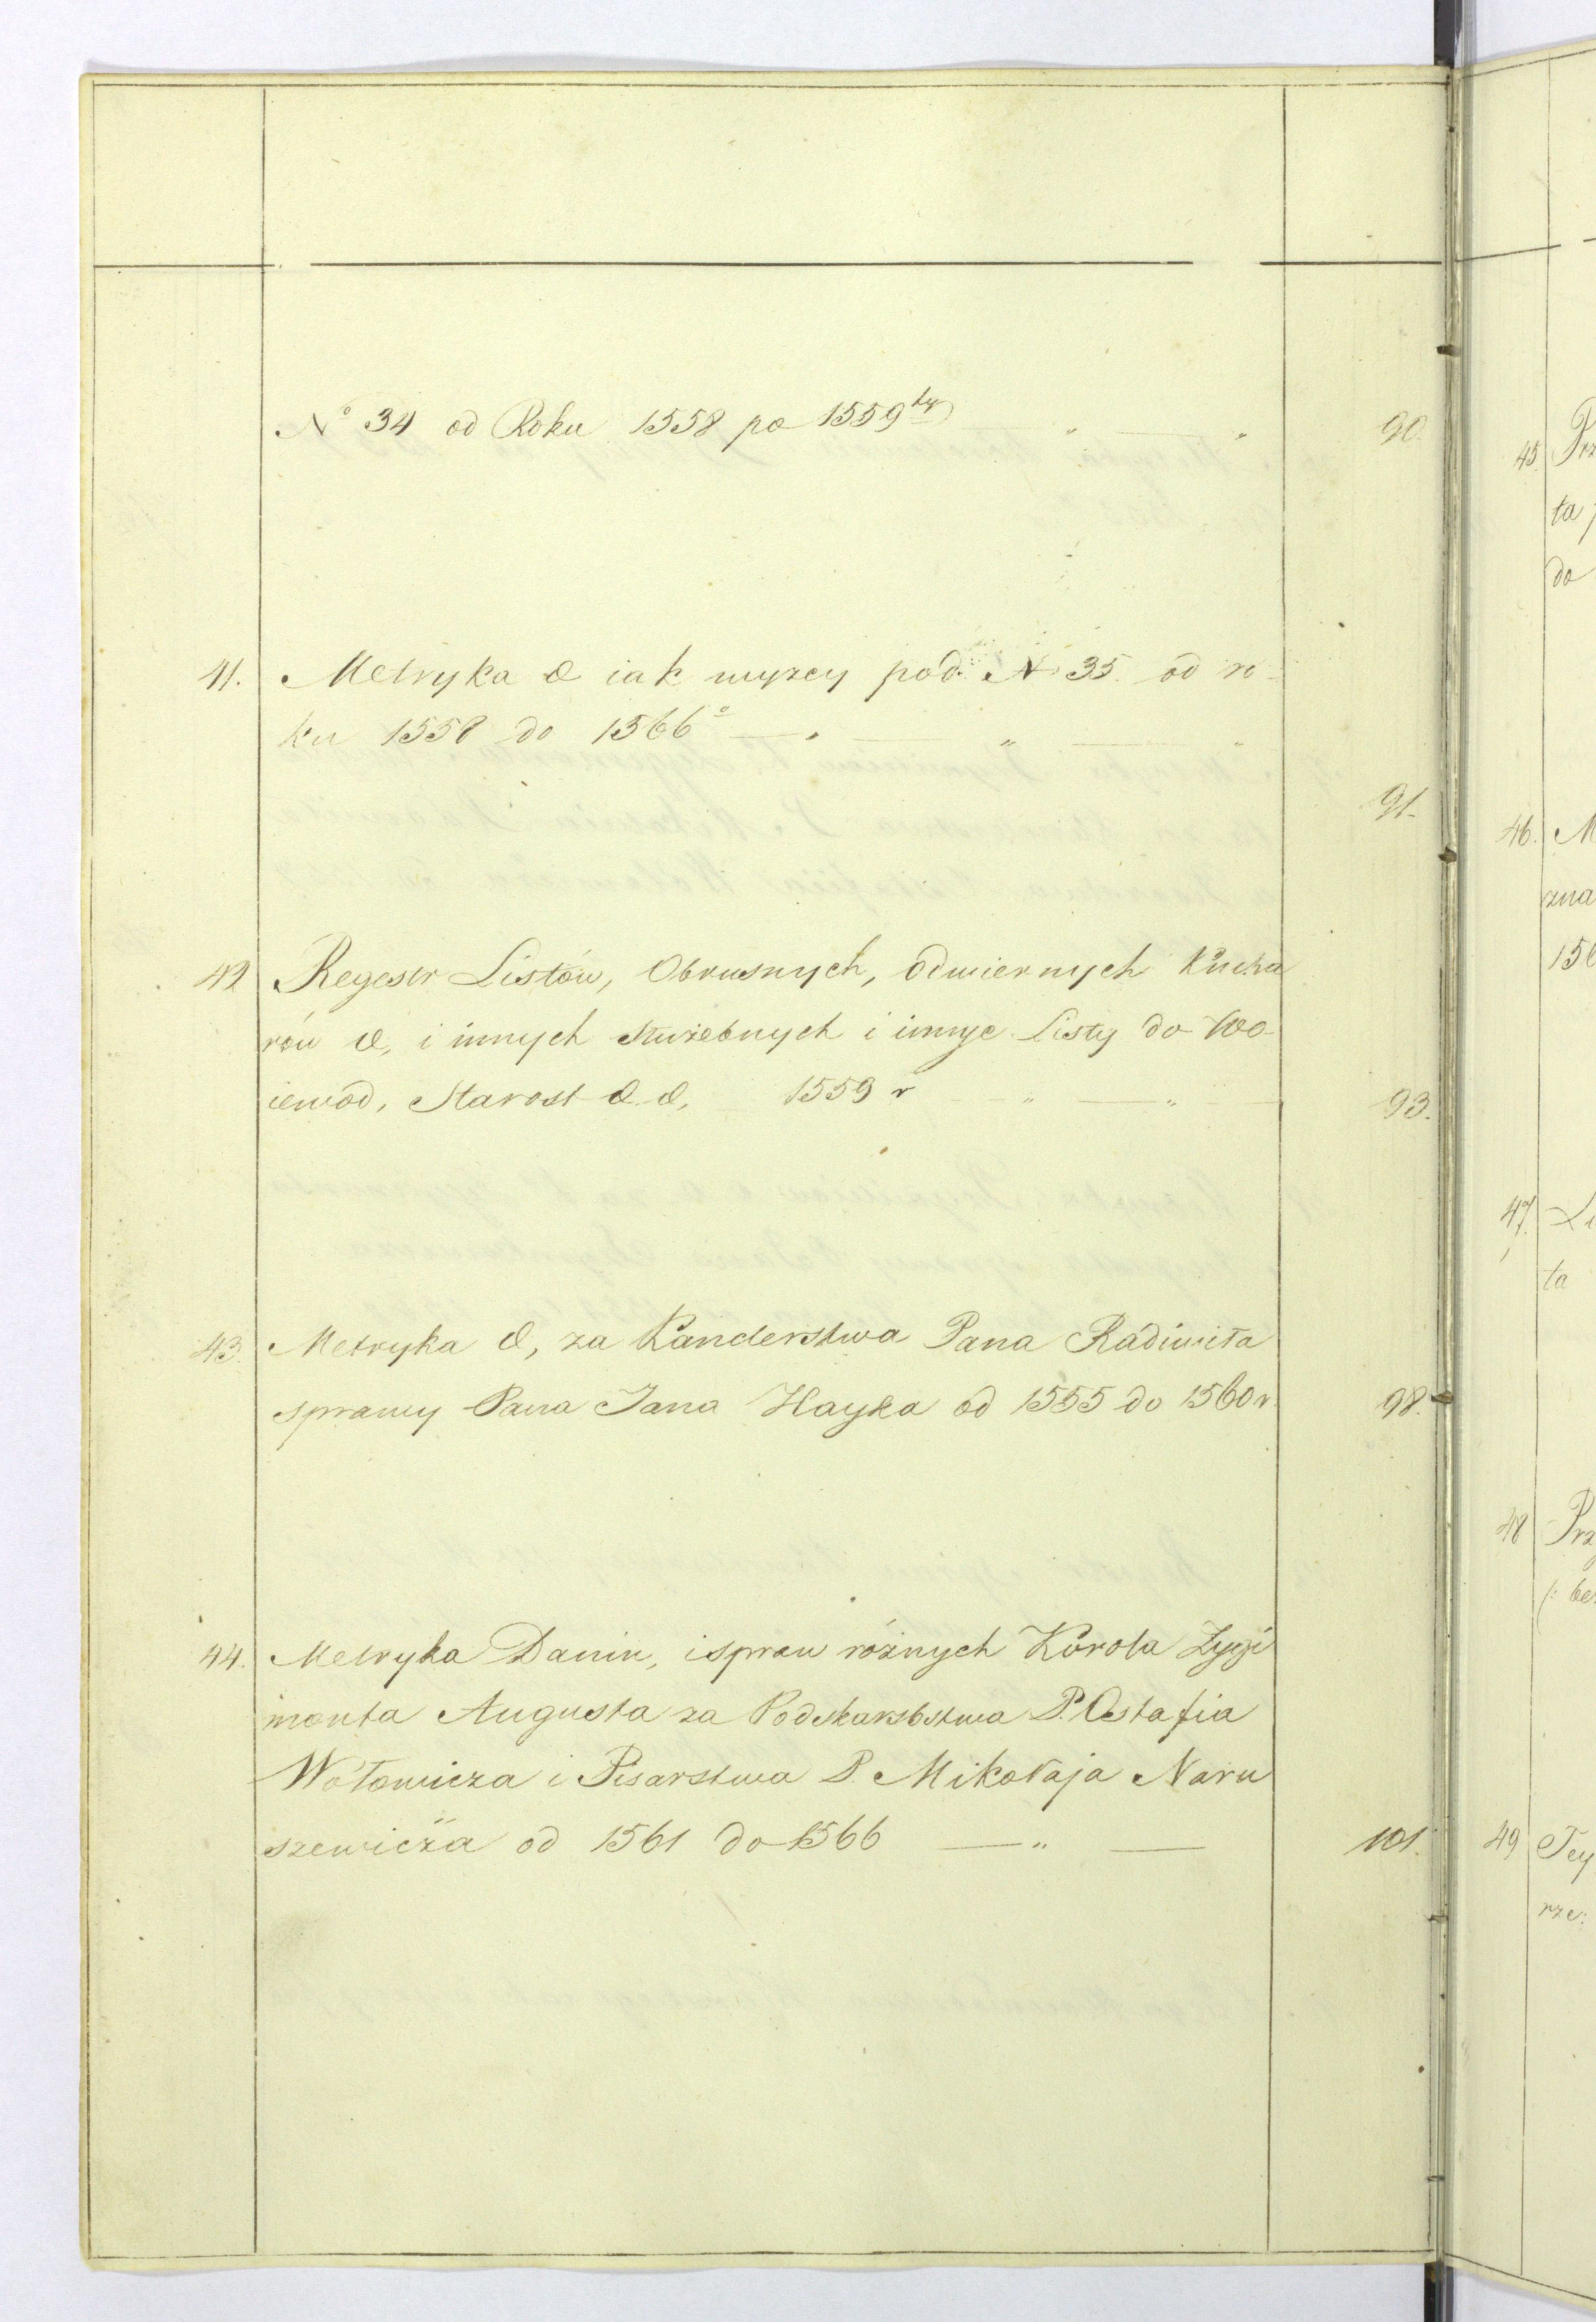 N° 34 od Roku 1558 po 1559ty „ — „ 90.
41. Metryka & iak wyzey pod N 35. od ro-
ku 1558 do 1566° — „ — „ — „
91.
42 Regestr Listów, Obrusnych, Odwiernych Kucha
rów &, i innych Służebnych i innye Listy do Wo-
iewod, Starost & &, 1559 r „ — „ — 93.
43. Metryka &, za Kanclerstwa Pana Radiwiła
sprawy Pana Jana Hayka od 1555 do 1560 r. 98.
44. Metryka Danin, i spraw różnych Korola Zygi
monta Augusta za Podskarbstwa P. Ostafia
Wołowicza i Pisarstwa P. Mikołaja Naru
szewicza od 1561 do 1566 — „ — 101.
45. Prz
ta
do
46. M
zna
156
47. Li
ta
48 Prz
(: bez
49 Tey
rze: